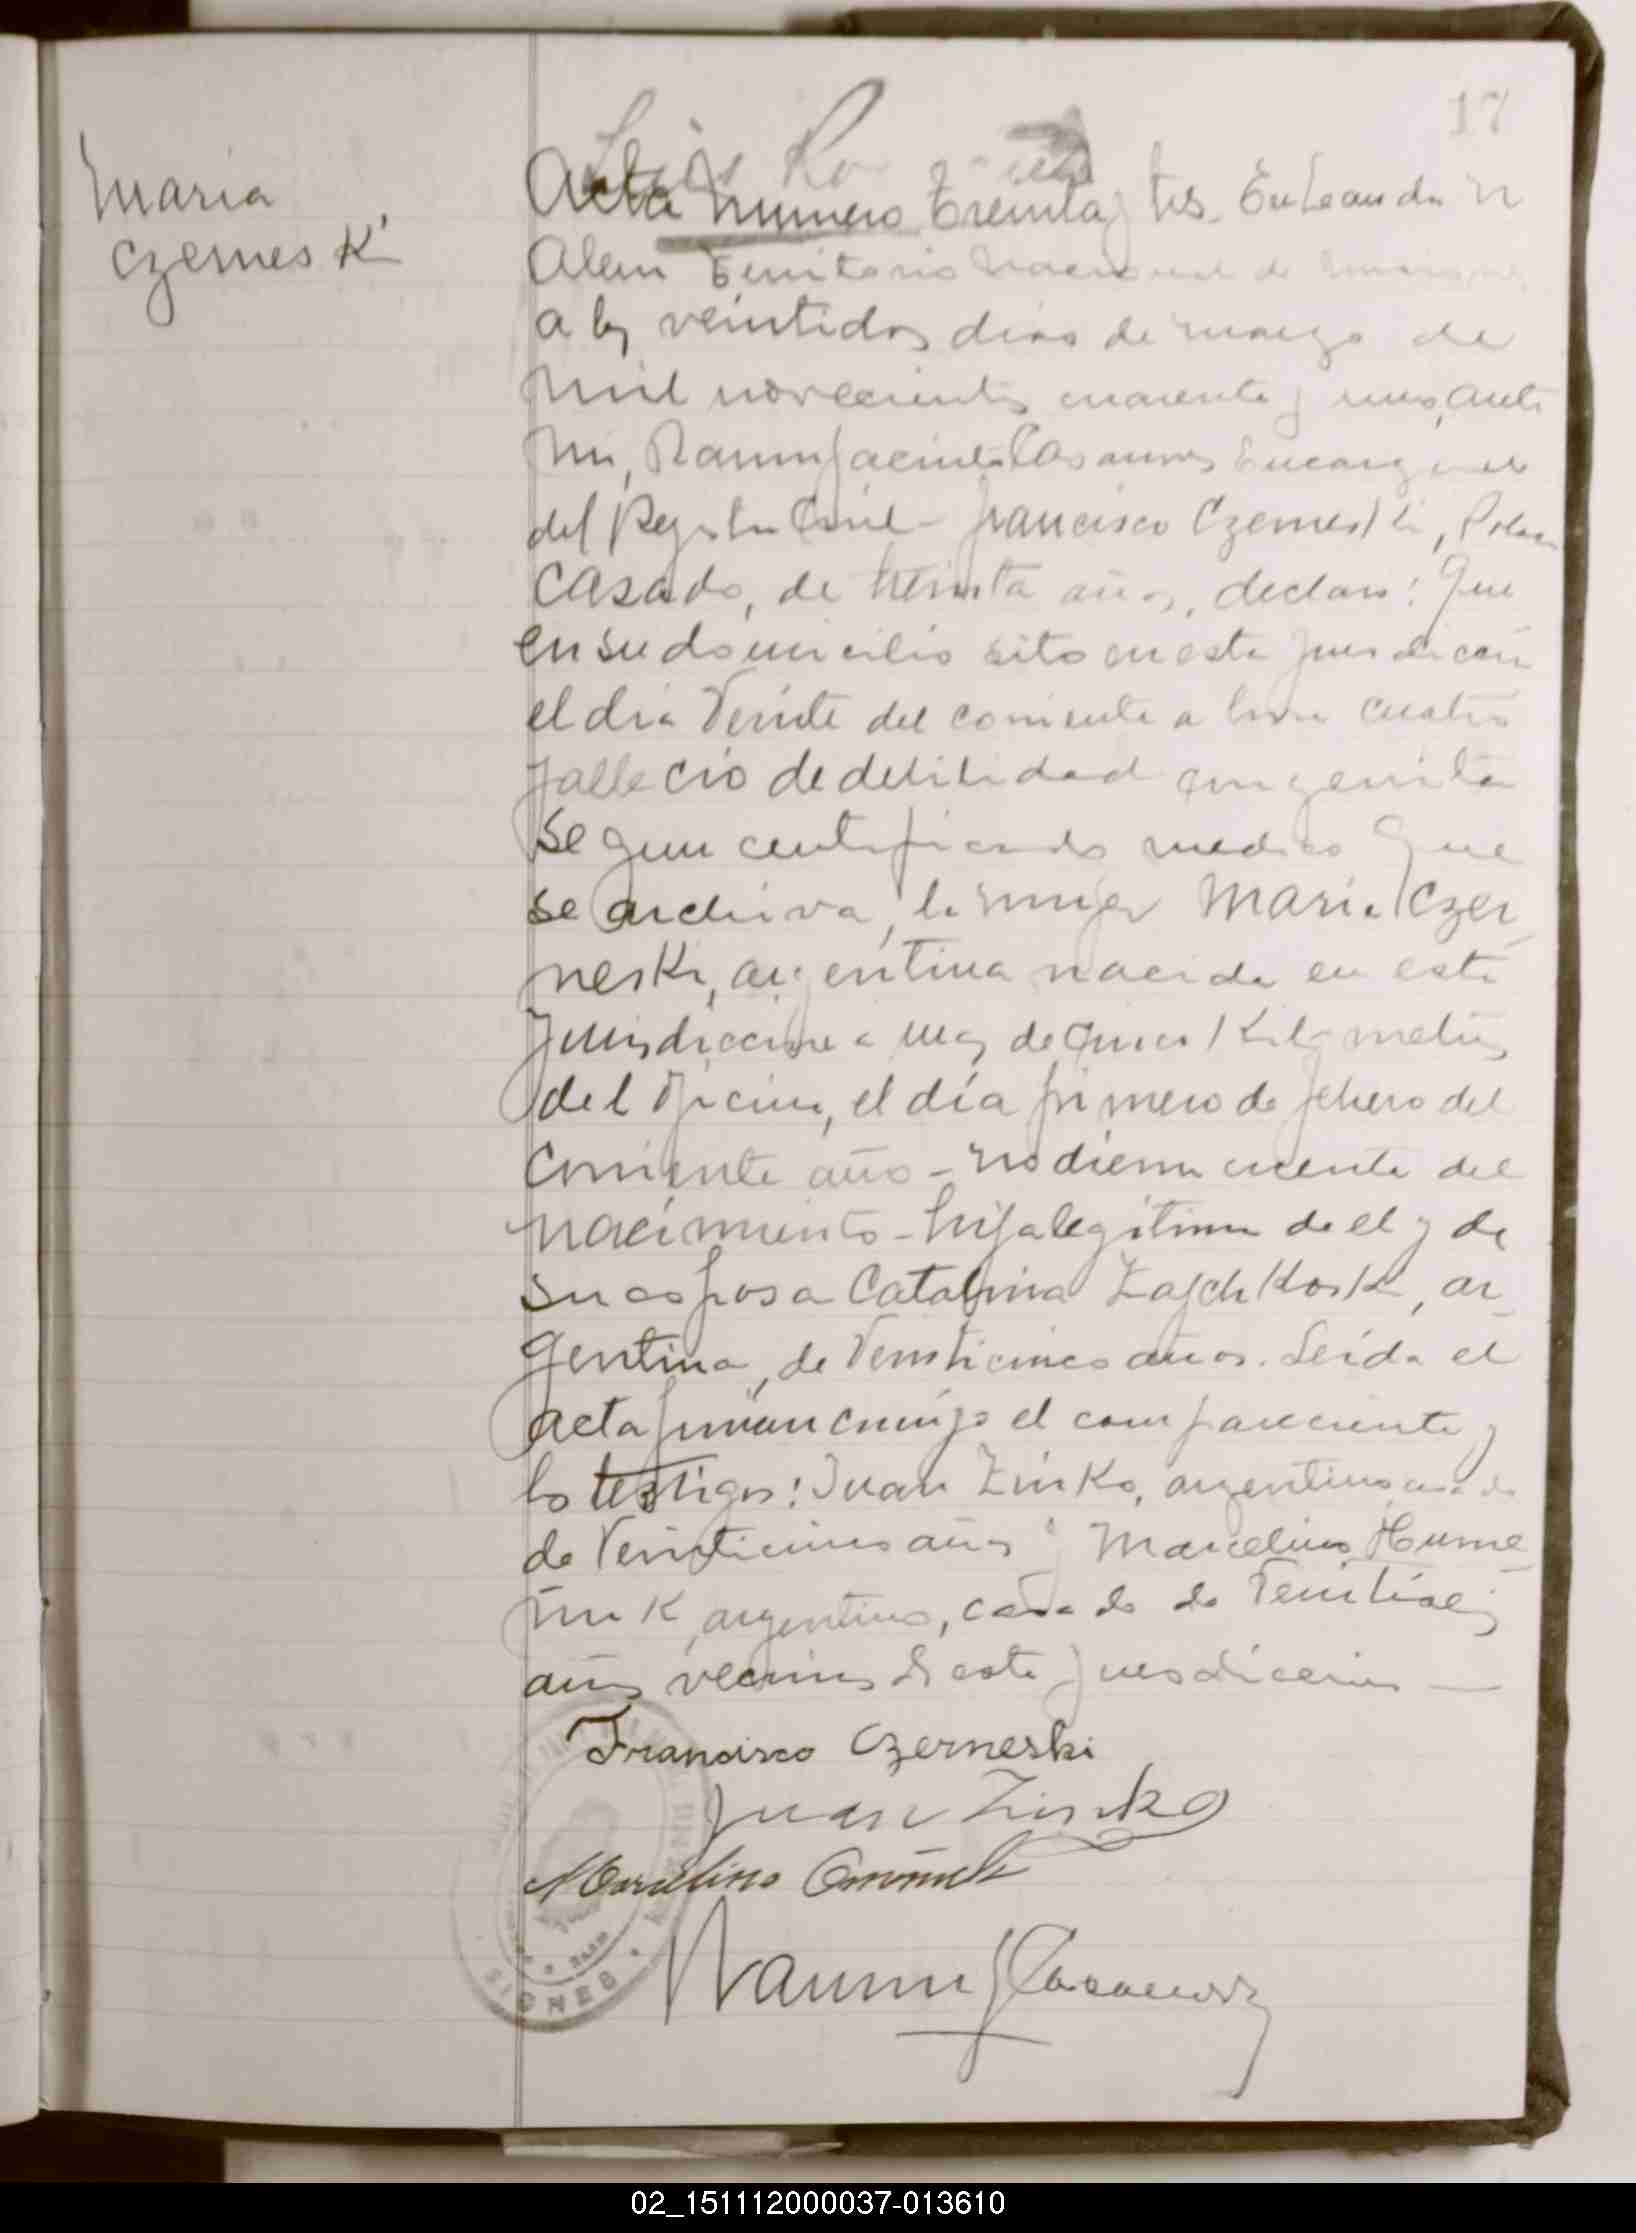 17
Maria
Czerneski
Acta Numero Treinta y tres. En Leandro N
Alem Territorio Nacional de Misiones
a los veintidos dias de marzo de
mil novecientos cuarenta y uno, ante
mi, Ramon Jacinto Casanova Encargado
del Registro Civil - Francisco Czerneski, Polaco
casado, de treinta años, declaro: Que
en su domicilio sito en esta jurisdiccion
el dia Veinte del corriente a hora cuatro
fallecio de debilidad congenita
segun certificado medico que
se archiva, la mujer Maria Czer
neski, argentina nacida en esta
jurisdiccion a mas de cinco Kilometros
de l oficina, el día primero de febrero del
corriente año - no dieron cuenta del
nacimiento - hija legitima de el y de
su esposa Catalina Zajchkoski, ar
gentina, de Veinticinco años. Leída el
acta firman conmigo el compareciente y
los testigos: Juan Zinko, argentino casado
de Veinticinco años y Marcelino Hume
ñuk, argentino, casado de Veintiseis
años vecinos de esta jurisdiccion —
Francisco Czerneski
Juan Zinko
Marcelino
Ramon J Casanova
SIONES
02_151112000037-013610